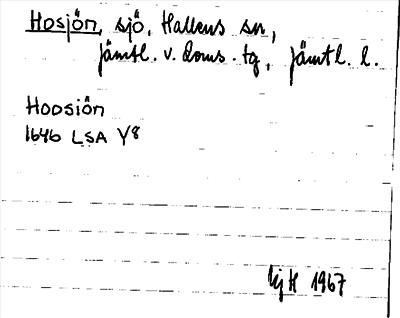 Hosjön, sjö, Hallens sn,
Jämtl. v. doms. tg, Jämtl. l.
Hoosiön
1646 LSA Y8
1967